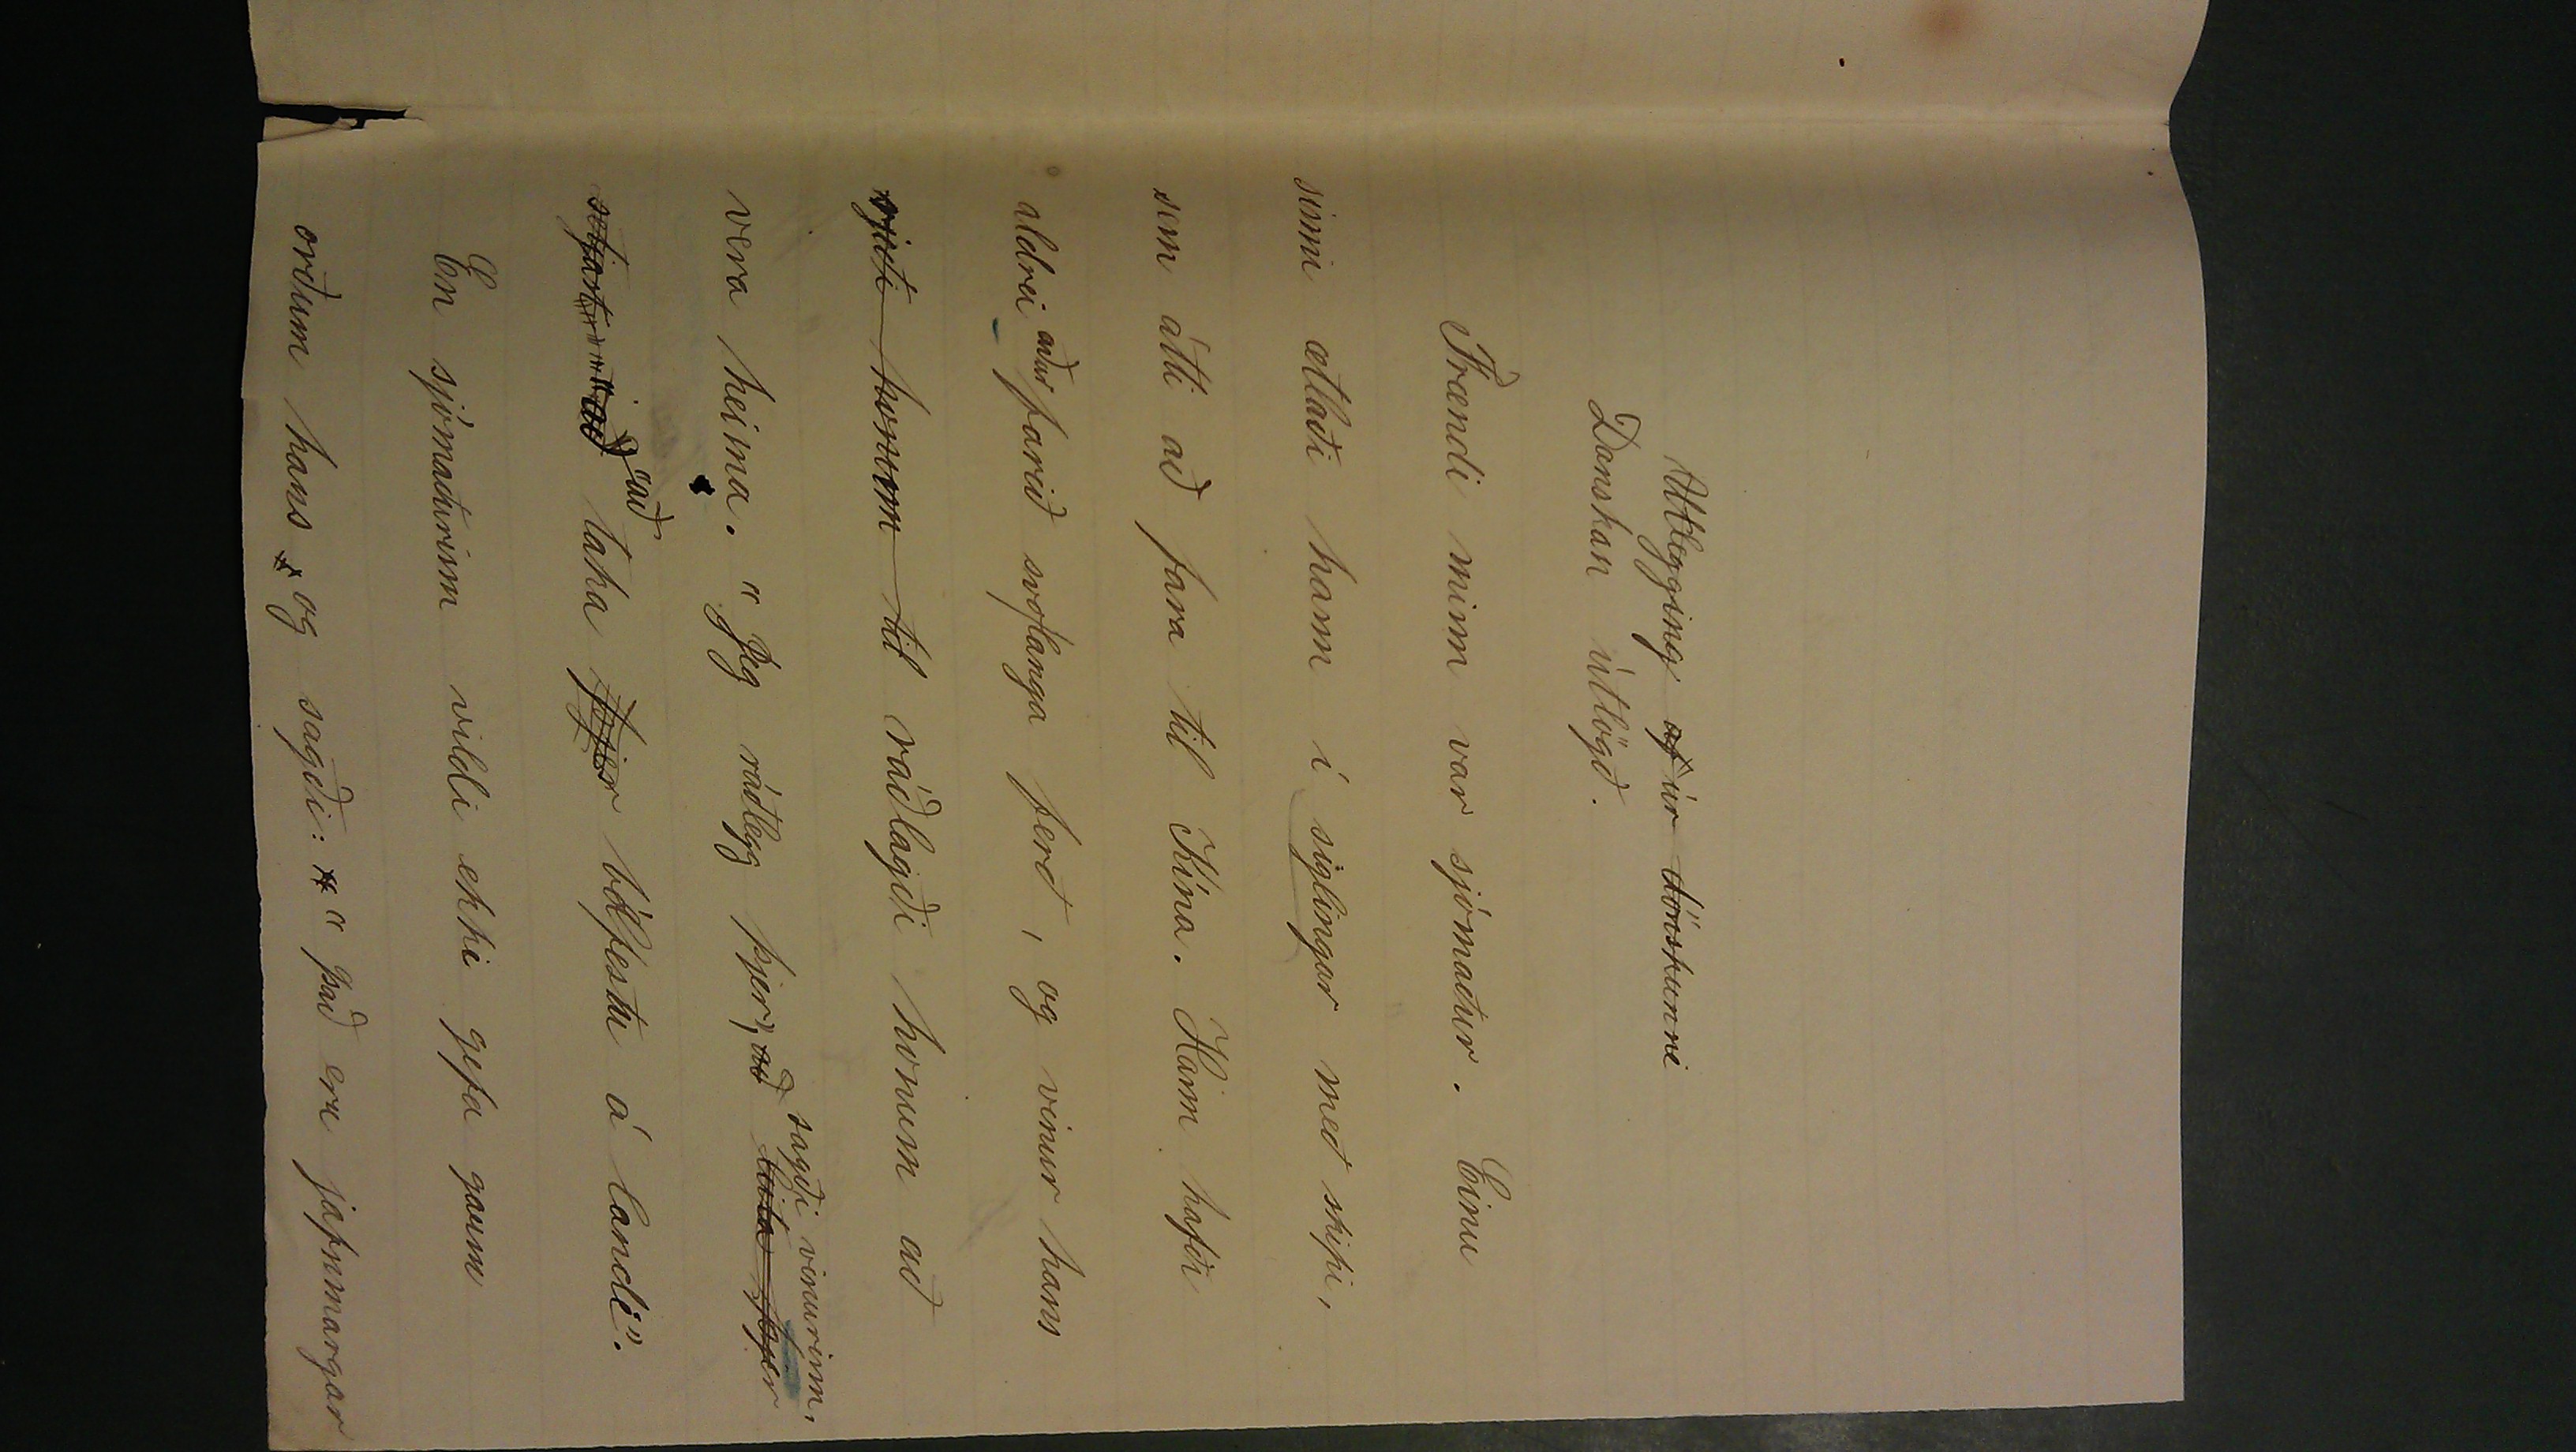 Utlegging af úr dönskunni
Danskan útlögð.
Frændi minn var sjómaður. Einu
sinni ætlaði hann í siglingar með skipi,
sem átti að fara til Kína. Hann hafði
aldrei aður farið svo langa ferð, og vinur hans
honum til ráðlagði honum að
vera heima. "Jeg ráðlegg þjer", að sagði vinurinn,
að "að taka þjer bólfestu á landi".
En sjómaðurinn vildi ekki gefa gaum
orðum hans og sagði: "Það eru jafnmargar